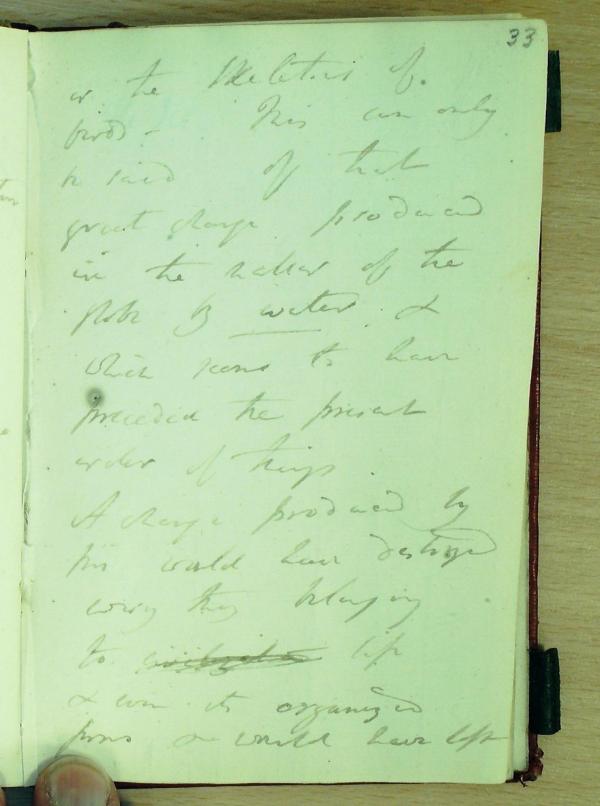 33
or the skeletons of
birds - This can only
be said of that
great change produced
in the matter of the
globe by water &
which seems to have
preceded the present
order of things.
A change produced by
fire would have destroyed
every thing belonging
to civilization life
& even its organized
forms & would have left